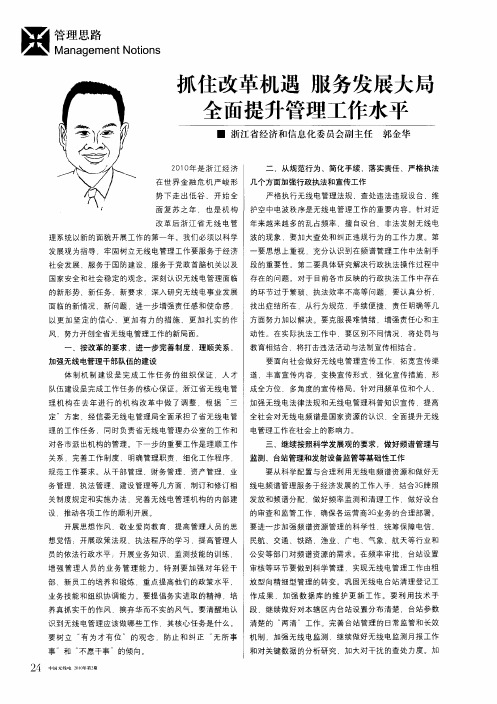 管理思路
Management Notions
抓住改革机遇 服务发展大局
全面提升管理工作水平
■ 浙江省经济和信息化委员会副主任 郭金华
2010年是浙江经济
在世界金融危机严峻形
势下走出低谷、开始全
面复苏之年，也是机构
改革后浙江省无线电管
理系统以新的面貌开展工作的第一年。我们必须以科学
发展观为指导，牢固树立无线电管理工作要服务于经济
社会发展、服务于国防建设、服务于党政首脑机关以及
国家安全和社会稳定的观念。深刻认识无线电管理面临
的新形势、新任务、新要求，深入研究无线电事业发展
面临的新情况、新问题，进一步增强责任感和使命感，
以更加坚定的信心、更加有力的措施、更加扎实的作
风，努力开创全省无线电管理工作的新局面。
一、按改革的要求，进一步完善制度，理顺关系，
加强无线电管理干部队伍的建设
体制机制建设是完成工作任务的组织保证，人才
队伍建设是完成工作任务的核心保证。浙江省无线电管
理机构在去年进行的机构改革中做了调整，根据“三
定”方案，经信委无线电管理局全面承担了省无线电管
理的工作任务，同时负责省无线电管理办公室的工作和
对各市派出机构的管理。下一步的重要工作是理顺工作
关系，完善工作制度，明确管理职责，细化工作程序，
规范工作要求。从干部管理、财务管理、资产管理、业
务管理、执法管理、建设管理等几方面，制订和修订相
关制度规定和实施办法，完善无线电管理机构的内部建
设，推动各项工作的顺利开展。
开展思想作风、敬业爱岗教育，提高管理人员的思
想觉悟；开展政策法规、执法程序的学习，提高管理人
员的依法行政水平；开展业务知识、监测技能的训练，
增强管理人员的业务管理能力。特别要加强对年轻干
部、新员工的培养和锻炼，重点提高他们的政策水平、
业务技能和组织协调能力。要提倡务实进取的精神，培
养真抓实干的作风，摈弃华而不实的风气。要清醒地认
识到无线电管理应该做哪些工作，其核心任务是什么。
要树立“有为才有位”的观念，防止和纠正“无所事
事”和“不愿干事”的倾向。
二、从规范行为、简化手续、落实责任、严格执法
几个方面加强行政执法和宣传工作
严格执行无线电管理法规，查处违法违规设台，维
护空中电波秩序是无线电管理工作的重要内容。针对近
年来越来越多的乱占频率、擅自设台、非法发射无线电
波的现象，要加大查处和纠正违规行为的工作力度。第
一要思想上重视，充分认识到在频谱管理工作中法制手
段的重要性。第二要具体研究解决行政执法操作过程中
存在的问题。对于目前各市反映的行政执法工作中存在
的环节过于繁琐、执法效率不高等问题，要认真分析，
找出症结所在，从行为规范、手续便捷、责任明晰等几
方面努力加以解决。要克服畏难情绪，增强责任心和主
动性。在实际执法工作中，要区别不同情况，将处罚与
教育相结合，将打击违法活动与法制宣传相结合。
要面向社会做好无线电管理宣传工作，拓宽宣传渠
道，丰富宣传内容，变换宣传形式，强化宣传措施，形
成全方位、多角度的宣传格局。针对用频单位和个人，
加强无线电法律法规和无线电管理科普知识宣传，提高
全社会对无线电频谱是国家资源的认识，全面提升无线
电管理工作在社会上的影响力。
三、继续按照科学发展观的要求，做好频谱管理与
监测、台站管理和发射设备监管等基础性工作
要从科学配置与合理利用无线电频谱资源和做好无
线电频谱管理服务于经济发展的工作入手，结合3G牌照
发放和频谱分配，做好频率监测和清理工作，做好设台
的审查和监管工作，确保各运营商3G业务的合理部署。
要进一步加强频谱资源管理的科学性，统筹保障电信、
民航、交通、铁路、渔业、广电、气象、航天等行业和
公安等部门对频谱资源的需求。在频率审批、台站设置
审核等环节要做到科学管理，实现无线电管理工作由粗
放型向精细型管理的转变。巩固无线电台站清理登记工
作成果，加强数据库的维护更新工作。要利用技术手
段，继续做好对本辖区内台站设置分布清楚、台站参数
清楚的“两清”工作。完善台站管理的日常监管和长效
机制，加强无线电监测，继续做好无线电监测月报工作
和对关键数据的分析研究，加大对干扰的查处力度。加
24 中国无线电 2010年第2期